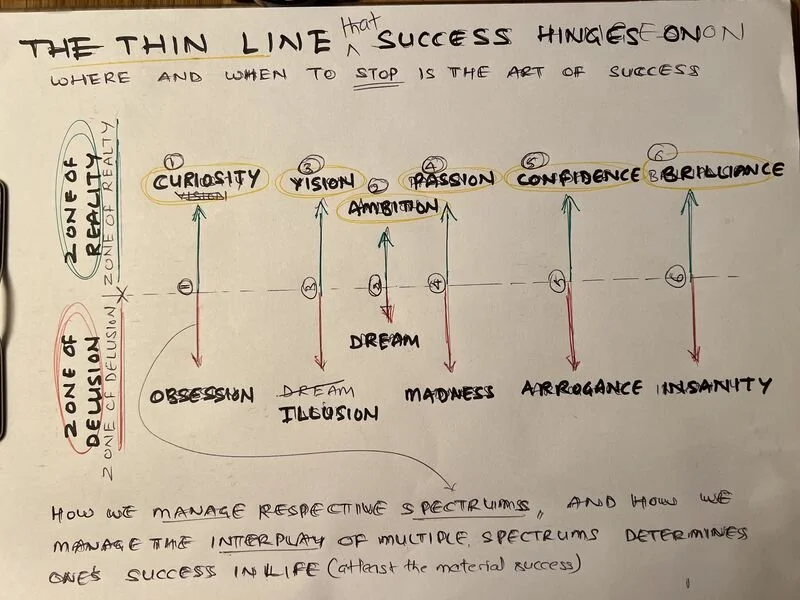 THE THIN LINE that SUCCESS HINGES ON ON
WHERE AND WHEN TO STOP IS THE ART OF SUCCESS
ZONE OF REALITY
ZONE OF REALTY
① CURIOSITY
VISION
③ VISION
② AMBITION
④ PASSION
⑤ CONFIDENCE
⑥ BBRILLIANCE
① ③ ② ④ 5 ⑥
X
ZONE OF DELUSION
ZONE OF DELUSION
DREAM
OBSESSION
DREAM
ILLUSION
MADNESS
ARROGANCE
INSANITY
HOW WE MANAGE RESPECTIVE SPECTRUMS, AND HOW WE
MANAGE THE INTERPLAY OF MULTIPLE SPECTRUMS DETERMINES
ONE'S SUCCESS IN LIFE (atleast the material success)